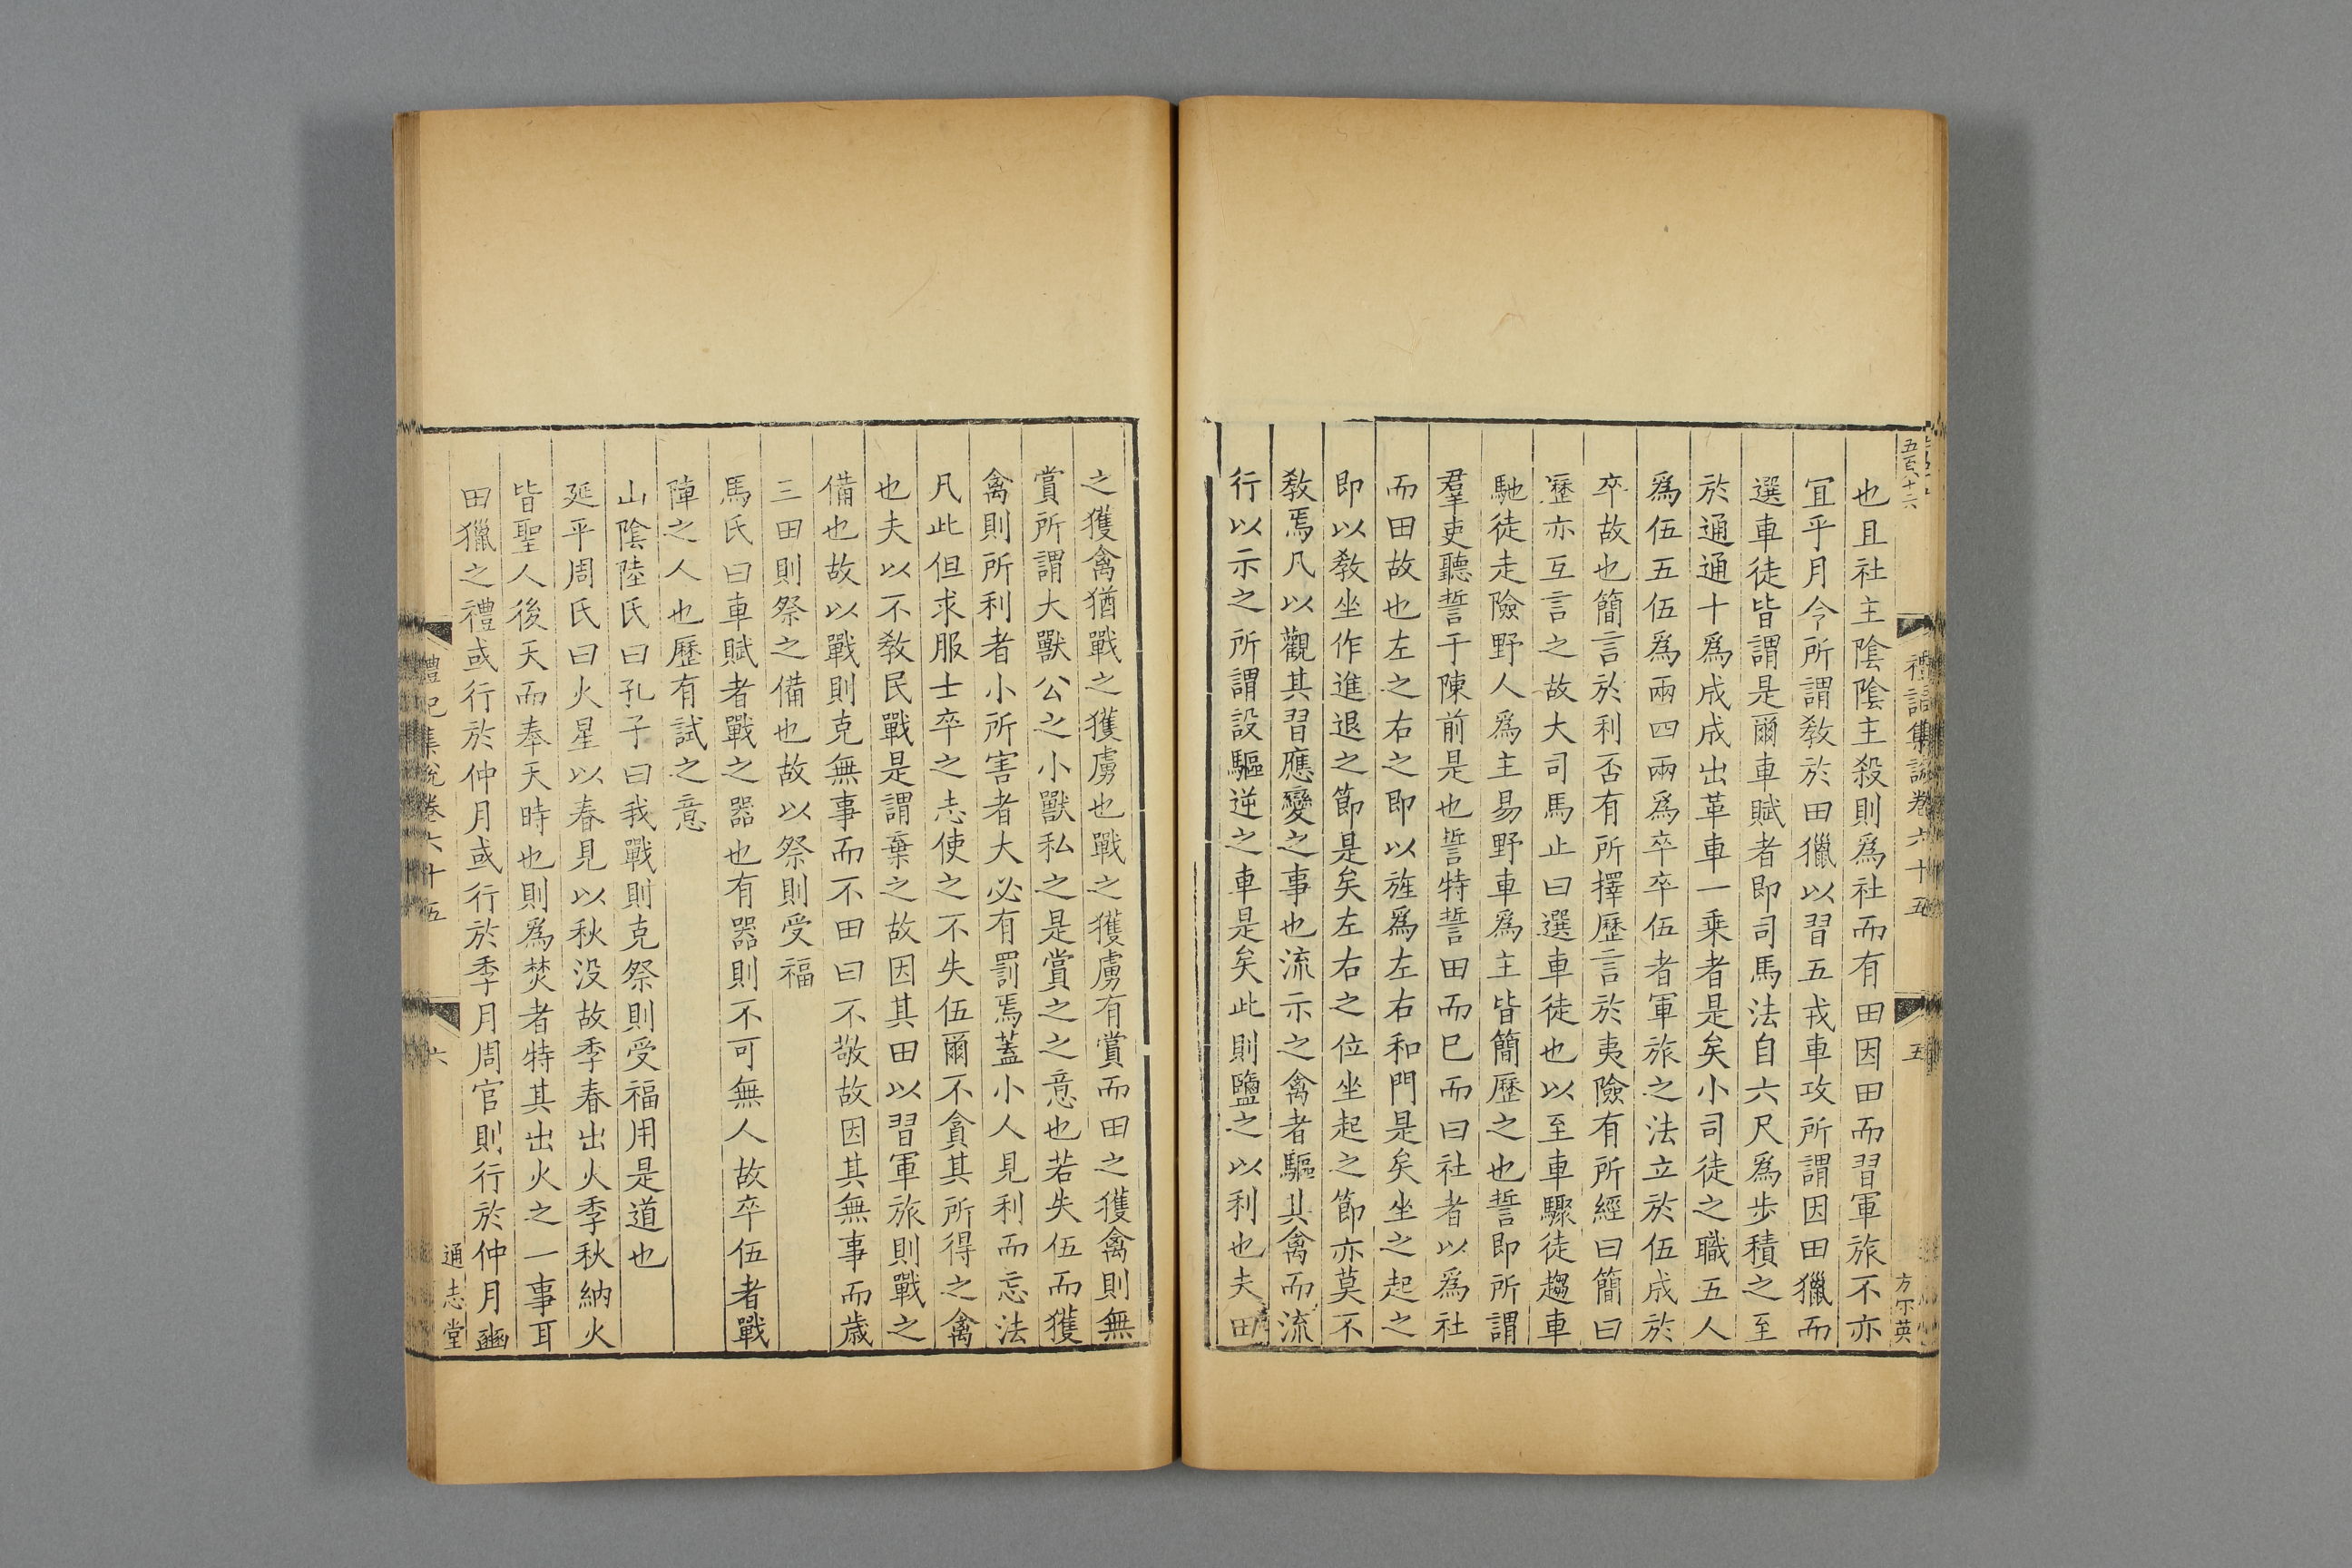 五百八十六
禮記集說卷六十五
五
方宗英
也且社主陰陰主殺則爲社而有田因田而習軍旅不亦
宜乎月令所謂敎於田獵以習五戎車攻所謂因田獵而
選車徒皆謂是爾車賦者即司馬法自六尺爲步積之至
於通通十爲成成出革車一乗者是矣小司徒之職五人
爲伍五伍爲兩四兩爲卒卒伍者軍旅之法立於伍成於
卒故也簡言於利否有所擇歷言於夷險有所經曰簡曰
歷亦互言之故大司馬止曰選車徒也以至車驟徒趨車
馳徒走險野人爲主易野車爲主皆簡歷之也誓即所謂
羣吏聽誓于陳前是也誓特誓田而已而曰社者以爲社
而田故也左之右之即以旌爲左右和門是矣坐之起之
即以敎坐作進退之節是矣左右之位坐起之節亦莫不
敎焉凡以觀其習應變之事也流示之禽者驅其禽而流
行以示之所謂設驅逆之車是矣此則鹽之以利也夫田
之獲禽猶戰之獲虜也戰之獲虜有賞而田之獲禽則無
賞所謂大獸公之小獸私之是賞之之意也若失伍而獲
禽則所利者小所害者大必有罰焉蓋小人見利而忘法
凡此但求服士卒之志使之不失伍爾不貪其所得之禽
也夫以不敎民戰是謂棄之故因其田以習軍旅則戰之
備也故以戰則克無事而不田曰不敬故因其無事而歲
三田則祭之備也故以祭則受福
馬氏曰車賦者戰之器也有器則不可無人故卒伍者戰
陣之人也歷有試之意
山陰陸氏曰孔子曰我戰則克祭則受福用是道也
延平周氏曰火星以春見以秋没故季春出火季秋納火
皆聖人後天而奉天時也則爲焚者特其出火之一事耳
田獵之禮或行於仲月或行於季月周官則行於仲月豳
禮記集說卷六十五
六
通志堂